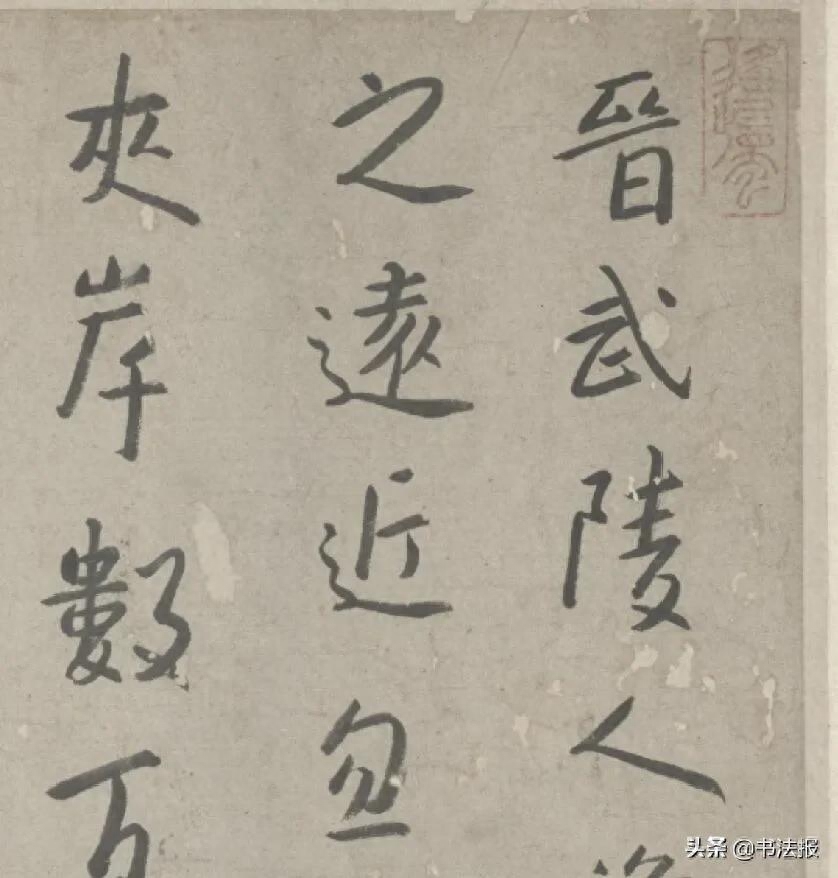 晉武陵人
之遠近忽
夾岸數百
头条 @书法报